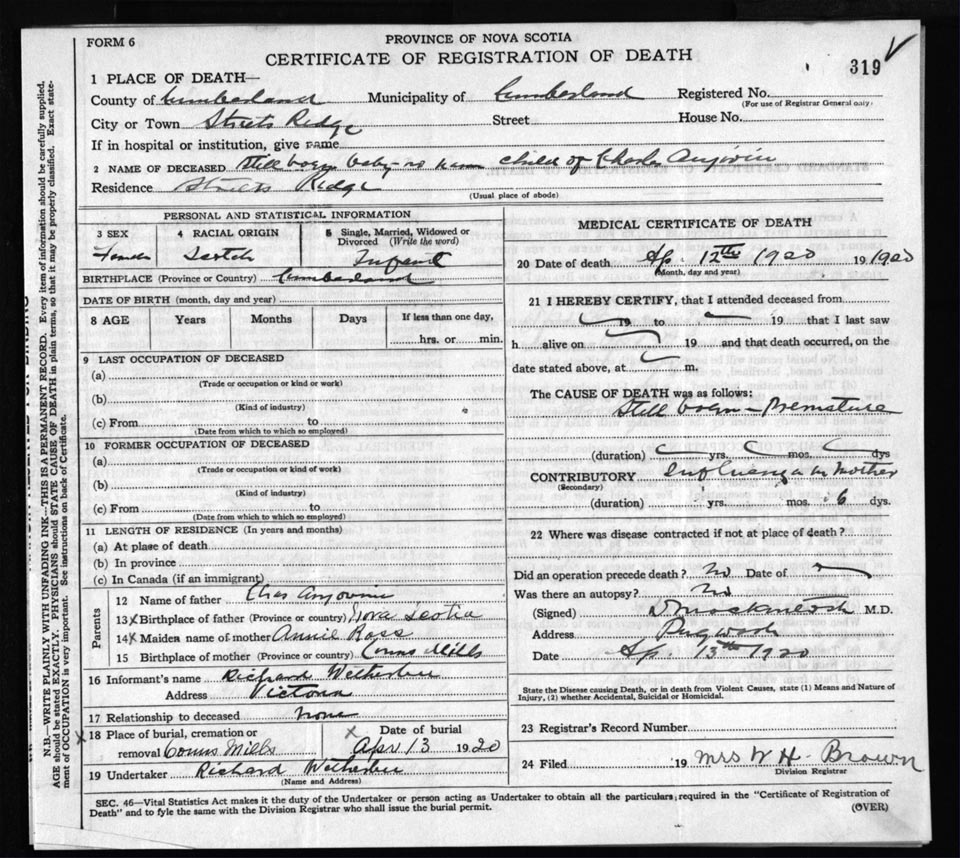 FORM 6
PROVINCE OF NOVA SCOTIA
CERTIFICATE OF REGISTRATION OF DEATH
319
1 PLACE OF DEATH—
County of Cumberland Municipality of Cumberland Registered No.
(For use of Registrar General only)
City or Town Streets Ridge Street House No.
If in hospital or institution, give name
2 NAME OF DECEASED Still born baby - no name child of Charles Anjivin
Residence Streets Ridge
(Usual place of abode)
PERSONAL AND STATISTICAL INFORMATION
3 SEX 4 RACIAL ORIGIN 5 Single, Married, Widowed or Divorced (Write the word)
Scotch Infant
BIRTHPLACE (Province or Country) Cumberland
DATE OF BIRTH (month, day and year)
8 AGE Years Months Days If less than one day,
hrs. or min.
9 LAST OCCUPATION OF DECEASED
(a)
(Trade or occupation or kind or work)
(b)
(Kind of industry)
(c) From to
(Date from which to which so employed)
10 FORMER OCCUPATION OF DECEASED
(a)
(Trade or occupation or kind of work)
(b)
(Kind of industry)
(c) From to
(Date from which to which so employed)
11 LENGTH OF RESIDENCE (In years and months)
(a) At place of death
(b) In province
(c) In Canada (if an immigrant)
Parents
12 Name of father Chas Anjovine
13 x Birthplace of father (Province or country) Nova Scotia
14 x Maiden name of mother Annie Ross
15 Birthplace of mother (Province or country) Conns Mills
16 Informant's name Richard Wetherbee
Address Victoria
17 Relationship to deceased none
x 18 Place of burial, cremation or removal Conns Mills
x Date of burial Apr 13 1920
19 Undertaker Richard Wetherbee
(Name and Address)
MEDICAL CERTIFICATE OF DEATH
20 Date of death Ap. 12th 1920 19 1920
(Month, day and year)
21 I HEREBY CERTIFY, that I attended deceased from
19 to 19 that I last saw
h alive on 19 and that death occurred, on the
date stated above, at m.
The CAUSE OF DEATH was as follows:
Still born - Premature
(duration) yrs. mos. dys
CONTRIBUTORY Influenza in Mother
(Secondary)
(duration) yrs. mos. 6 dys.
22 Where was disease contracted if not at place of death?
Did an operation precede death? No Date of
Was there an autopsy? No
(Signed) D Mackintosh M.D.
Address Pugwash
Date Ap. 13th 1920
State the Disease causing Death, or in death from Violent Causes, state (1) Means and Nature of
Injury, (2) whether Accidental, Suicidal or Homicidal.
23 Registrar's Record Number
24 Filed 19 Mrs W H. Brown
Division Registrar
SEC. 46—Vital Statistics Act makes it the duty of the Undertaker or person acting as Undertaker to obtain all the particulars required in the "Certificate of Registration of
Death" and to fyle the same with the Division Registrar who shall issue the burial permit.
(OVER)
N.B.—WRITE PLAINLY WITH UNFADING INK—THIS IS A PERMANENT RECORD. Every item of information should be carefully supplied.
AGE should be stated EXACTLY. PHYSICIANS should STATE CAUSE OF DEATH in plain terms, so that it may be properly classified. Exact statement of OCCUPATION is very important. See instructions on back of Certificate.